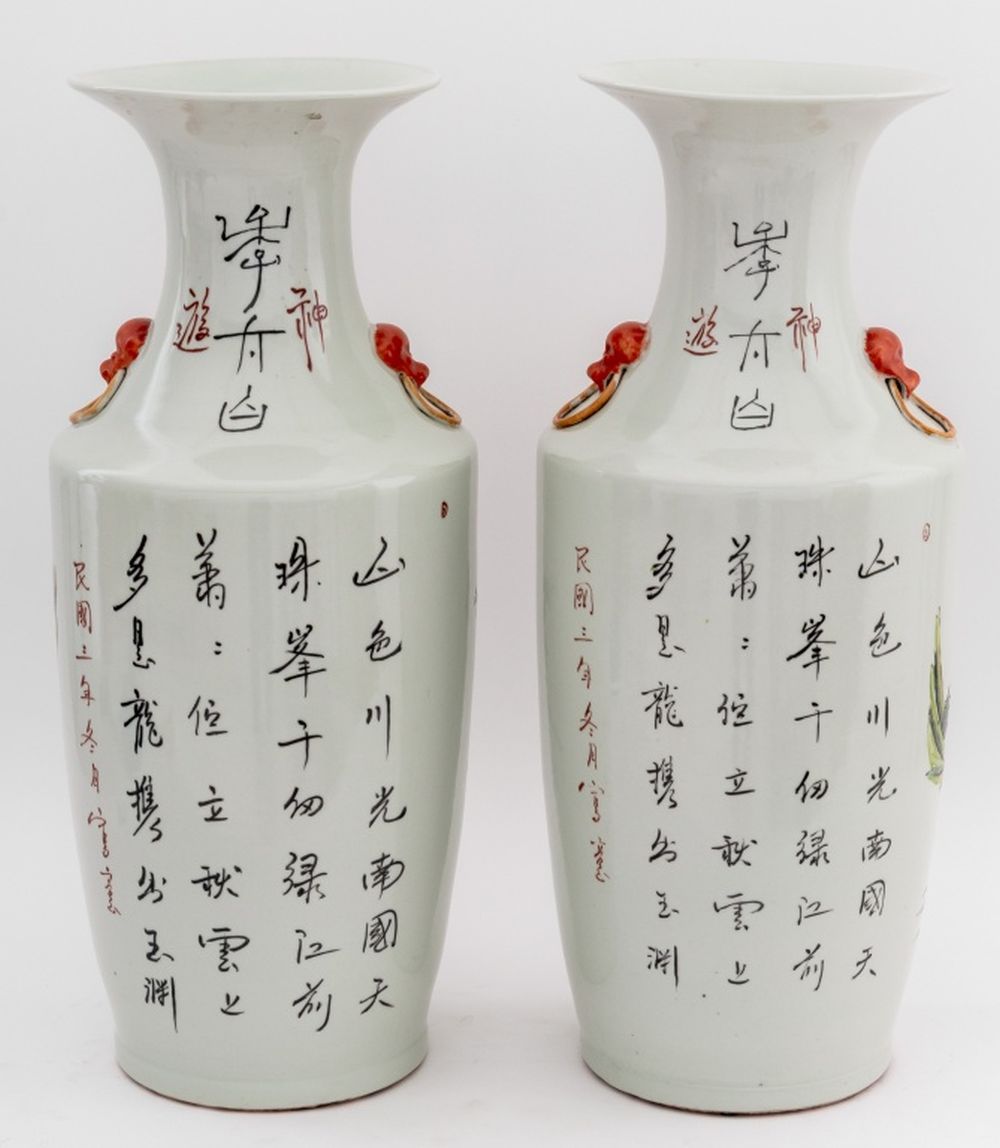 神遊
山色川光南國天
珠峯千仞綠江前
蕭:佢立秋雲上
多是龍攜出玉淵
民國三年冬月寫
神遊
山色川光南國天
珠峯千仞綠江前
蕭:佢立秋雲上
多是龍攜出玉淵
民國三年冬月寫